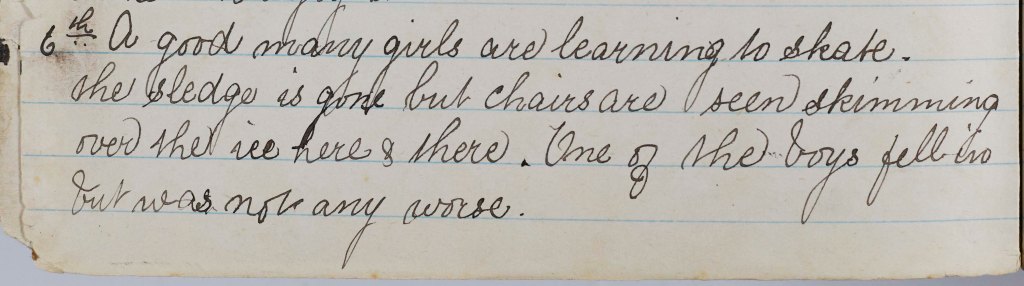 6th A good many girls are learning to skate.
the sledge is gone but chairs are seen skimming
over the ice here & there. One of the boys fell in
but was not any worse.